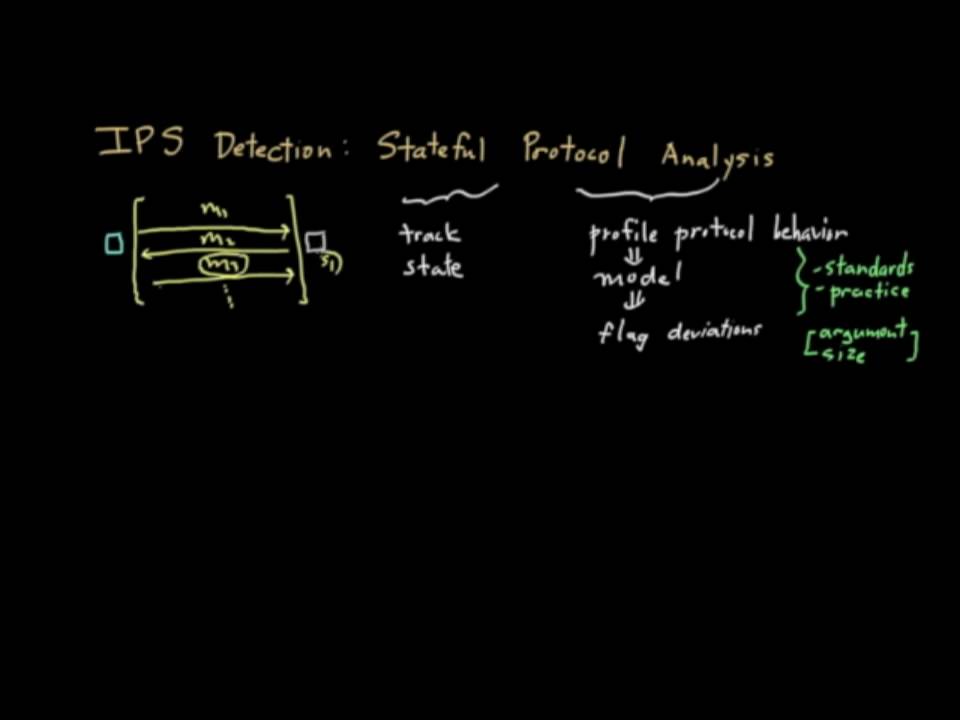 IPS Detection: Stateful Protocol Analysis
m₁
m₂
m₃
s₁)
track
state
profile protocol behavior
⇓
model
⇓
flag deviations
- standards
- practice
[argument
size]